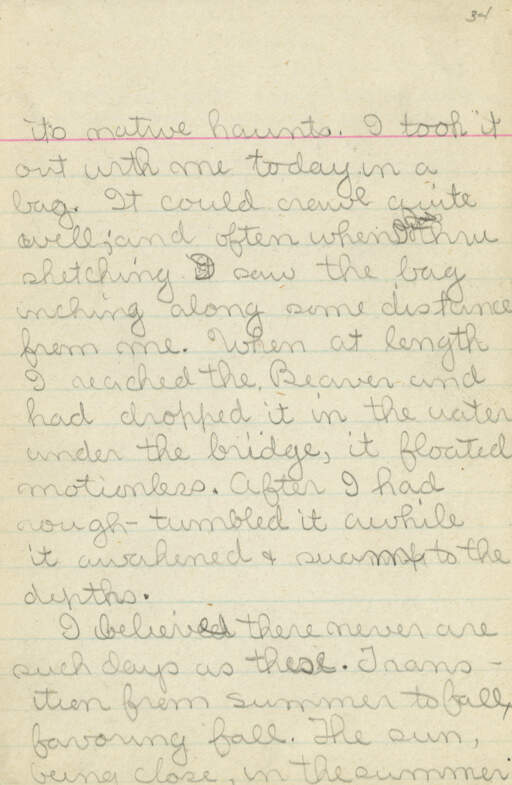 34
its native haunts. I took it
out with me today in a
bag. It could crawl quite
well; and often when thru
sketching I saw the bag
inching along some distance
from me. When at length
I reached the Beaver and
had dropped it in the water
under the bridge, it floated
motionless. After I had
rough-tumbled it awhile
it awakened & swam to the
depths.
I believed there never are
such days as these. Trans-
ition from summer to fall,
favoring fall. The sun,
being close, in the summer